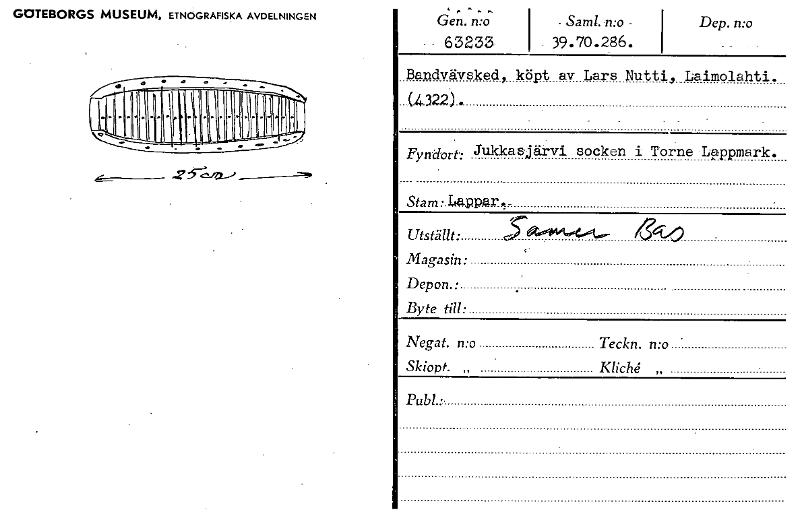 GÖTEBORGS MUSEUM, ETNOGRAFISKA AVDELNINGEN
25 cm
Gen. n:o
63233
Saml. n:o
39.70.286.
Dep. n:o
Bandvävsked, köpt av Lars Nutti, Laimolahti.
(4322).
Fyndort: Jukkasjärvi socken i Torne Lappmark.
Stam: Lappar.
Utställt: Samer Bas
Magasin:
Depon.:
Byte till:
Negat. n:o Teckn. n:o
Skiopt. „ Kliché „
Publ.: